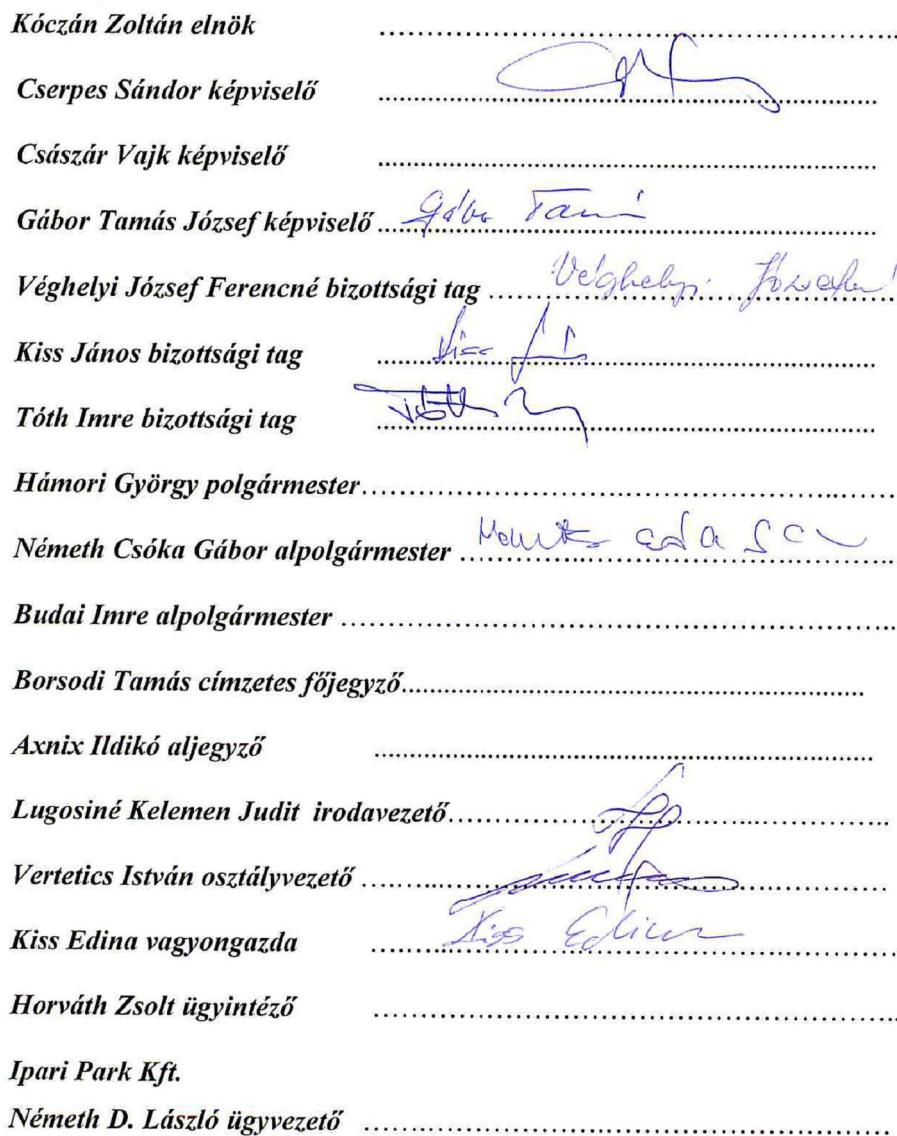 Kóczán Zoltán elnök ..............................
Cserpes Sándor képviselő ..............................
Császár Vajk képviselő ..............................
Gábor Tamás József képviselő .............................. Gábor Tamás
Véghelyi József Ferencné bizottsági tag .............................. Véghelyi Józsefné
Kiss János bizottsági tag .............................. Kiss
Tóth Imre bizottsági tag .............................. Tóth
Hámori György polgármester..............................
Németh Csóka Gábor alpolgármester ..............................
Budai Imre alpolgármester ..............................
Borsodi Tamás címzetes főjegyző..............................
Axnix Ildikó aljegyző ..............................
Lugosiné Kelemen Judit irodavezető..............................
Vertetics István osztályvezető ..............................
Kiss Edina vagyongazda .............................. Kiss Edina
Horváth Zsolt ügyintéző ..............................
Ipari Park Kft.
Németh D. László ügyvezető ..............................